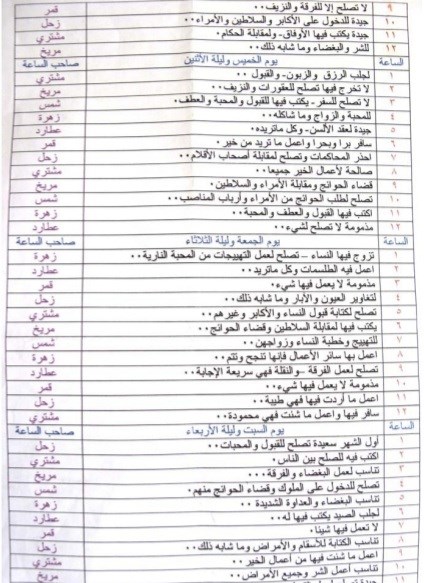 ٩ لا تصلح إلا للفرقة والنزيف٠٠ قمر
١٠ جيدة للدخول على الأكابر والسلاطين والأمراء٠٠ زحل
١١ جيدة يكتب فيها الأوفاق- ولمقابلة الحكام٠ مشتري
١٢ للشر والبغضاء وما شابه ذلك٠٠ مريخ
الساعة يوم الخميس وليلة الأثنين صاحب الساعة
١ لجلب الرزق والزبون- والقبول ٠٠ مشتري
٢ لا تخرج فيها تصلح للعقورات والنزيف٠ مريخ
٣ لا تصلح للسفر- يكتب فيها للقبول والمحبة والعطف٠ شمس
٤ للمحبة والزواج وما شاكله٠٠ زهرة
٥ جيدة لعقد الألسن- وكل ماتريده٠ عطارد
٦ سافر برا وبحرا واعمل ما تريد من خير٠ قمر
٧ احذر المحاكمات وتصلح لمقابلة أصحاب الأقلام٠٠ زحل
٨ صالحة لأعمال الخير جميعا٠٠ مشتري
٩ قضاء الحوائج ومقابلة الأمراء والسلاطين٠ مريخ
١٠ تصلح لطلب الحوائج من الأمراء وأرباب المناصب٠٠ شمس
١١ اكتب فيها القبول والعطف والمحبة٠٠ زهرة
١٢ مذمومة لا تصلح لشيء٠٠ عطارد
الساعة يوم الجمعة وليلة الثلاثاء صاحب الساعة
١ تزوج فيها النساء – تصلح لعمل التهييجات من المحبة النارية٠٠ زهرة
٢ اعمل فيه الطلسمات وكل ماتريد٠٠ عطارد
٣ مذمومة لا يعمل فيها شيء٠ قمر
٤ لتغاوير العيون والآبار وما شابه ذلك٠٠ زحل
٥ تصلح لكتابة قبول النساء والأكابر وغيرهم٠٠ مشتري
٦ يكتب فيها لمقابلة السلاطين وقضاء الحوائج٠٠ مريخ
٧ للتهييج وخطبة النساء وزواجهن٠٠ شمس
٨ اعمل بها سائر الأعمال فإنها تنجح وتتم٠٠ زهرة
٩ تصلح لعمل الفرقة –والنقلة فهي سريعة الإجابة٠٠ عطارد
١٠ مذمومة لا يعمل فيها شيء٠٠ قمر
١١ اعمل ما أردت فيها فهي طيبة٠٠ زحل
١٢ سافر فيها واعمل ما شئت فهي محمودة٠٠ مشتري
الساعة يوم السبت وليلة الأربعاء صاحب الساعة
١ أول الشهر سعيدة تصلح للقبول والمحبات٠٠ زحل
٢ اكتب فيه للصلح بين الناس٠ مشتري
٣ تناسب لعمل البغضاء والفرقة٠٠٠ مريخ
٤ تصلح للدخول على الملوك وقضاء الحوائج منهم٠ شمس
٥ تناسب البغضاء والعداوة الشديدة ٠٠ زهرة
٦ لجلب الصيد يكتب فيها له٠٠ عطارد
٧ لا تعمل فيها شيئا٠ قمر
٨ تناسب الكتابة للأسقام والأمراض وما شابه ذلك٠٠ زحل
٩ اعمل ما شئت فيها من أعمال الخير٠٠ مشتري
١٠ تناسب أعمال الشر وجميع الأمراض٠٠ مريخ